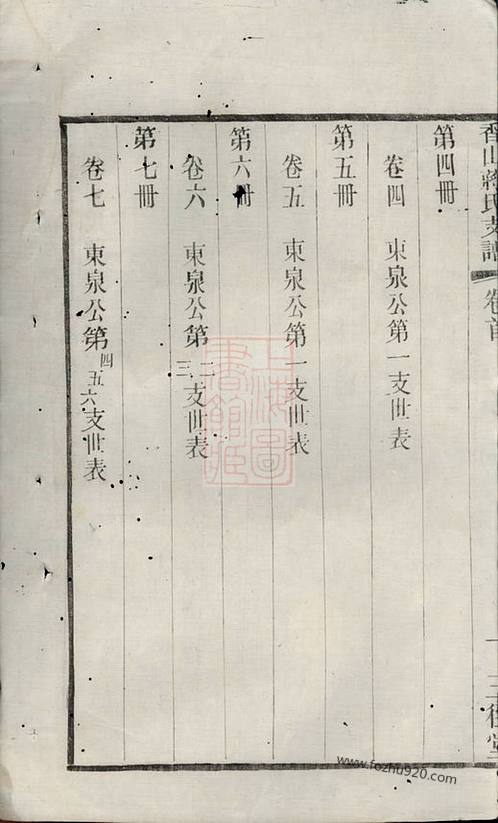 香山蔣氏支譜 卷首 三徑堂
第四冊
卷四 東泉公第一支世表
第五冊
卷五 東泉公第一支世表
第六冊
卷六 東泉公第二三支世表
第七冊
卷七 東泉公第四五六支世表
上海圖書館藏
www.fozhu920.com